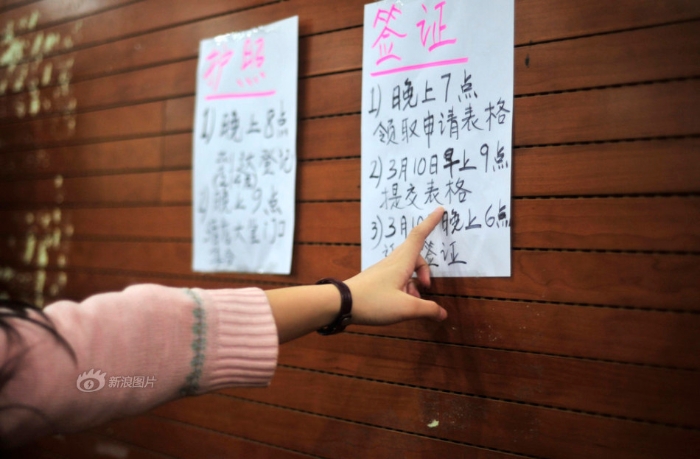 护照
1) 晚上8点
登记
2) 晚上9点
大堂门口
签证
1) 晚上7点
领取申请表格
2) 3月10日早上9点
提交表格
3) 3月10 晚上6点
签证
新浪图片